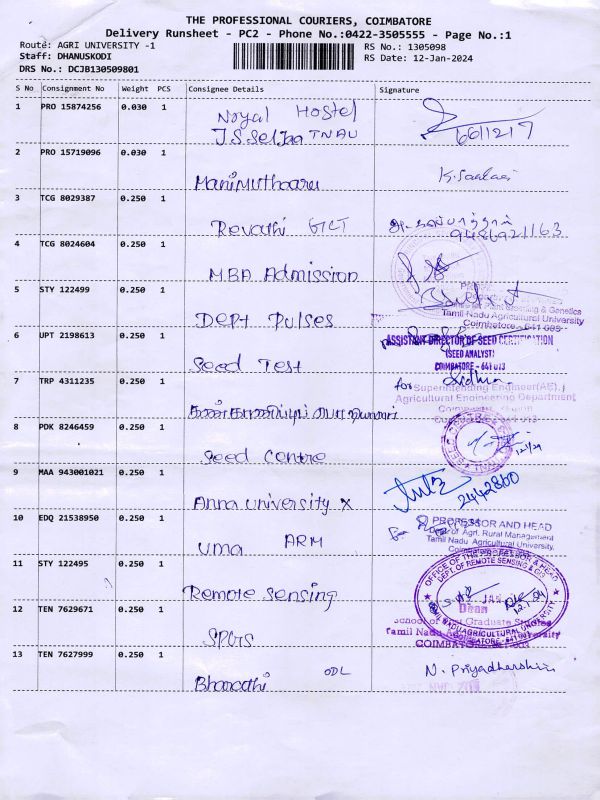 THE PROFESSIONAL COURIERS, COIMBATORE
Delivery Runsheet - PC2 - Phone No.:0422-3505555 - Page No.:1
Route: AGRI UNIVERSITY -1
RS No.: 1305098
Staff: DHANUSKODI
RS Date: 12-Jan-2024
DRS No.: DCJB130509801
S No Consignment No Weight PCS Consignee Details Signature
1 PRO 15874256 0.030 1 Noyal Hostel
TNAU 6611217
2 PRO 15719096 0.030 1
Manimuthoaru
3 TCG 8029387 0.250 1
Revathi 9486921163
4 TCG 8024604 0.250 1
MBA Admission
5 STY 122499 0.250 1
Plant Breeding & Genetics
Tamil Nadu Agricultural University
Dept Pulses Coimbatore - 641 003
6 UPT 2198613 0.250 1 ASSISTANT DIRECTOR OF SEED CERTIFICATION
(SEED ANALYST)
Seed Test COIMBATORE - 641 013
7 TRP 4311235 0.250 1 for
Superintending Engineer(AE),
Agricultural Engineering Department
8 PDK 8246459 0.250 1
Seed Centre 12/1/24
9 MAA 943001021 0.250 1
Anna university x 2442860
10 EDQ 21538950 0.250 1 PROFESSOR AND HEAD
Dept of Agri. Rural Management
Tamil Nadu Agricultural University,
uma ARM
11 STY 122495 0.250 1 OFFICE OF THE PROFESSOR & HEAD
DEPT. OF REMOTE SENSING & GIS
Remote sensing
12 TEN 7629671 0.250 1 Dean
School of Post Graduate Studies
TAMIL NADU AGRICULTURAL UNIVERSITY
Tamil Nadu Agricultural University
SPGS COIMBATORE - 641 003
13 TEN 7627999 0.250 1
Bharathi ODL N. Priyadharshini